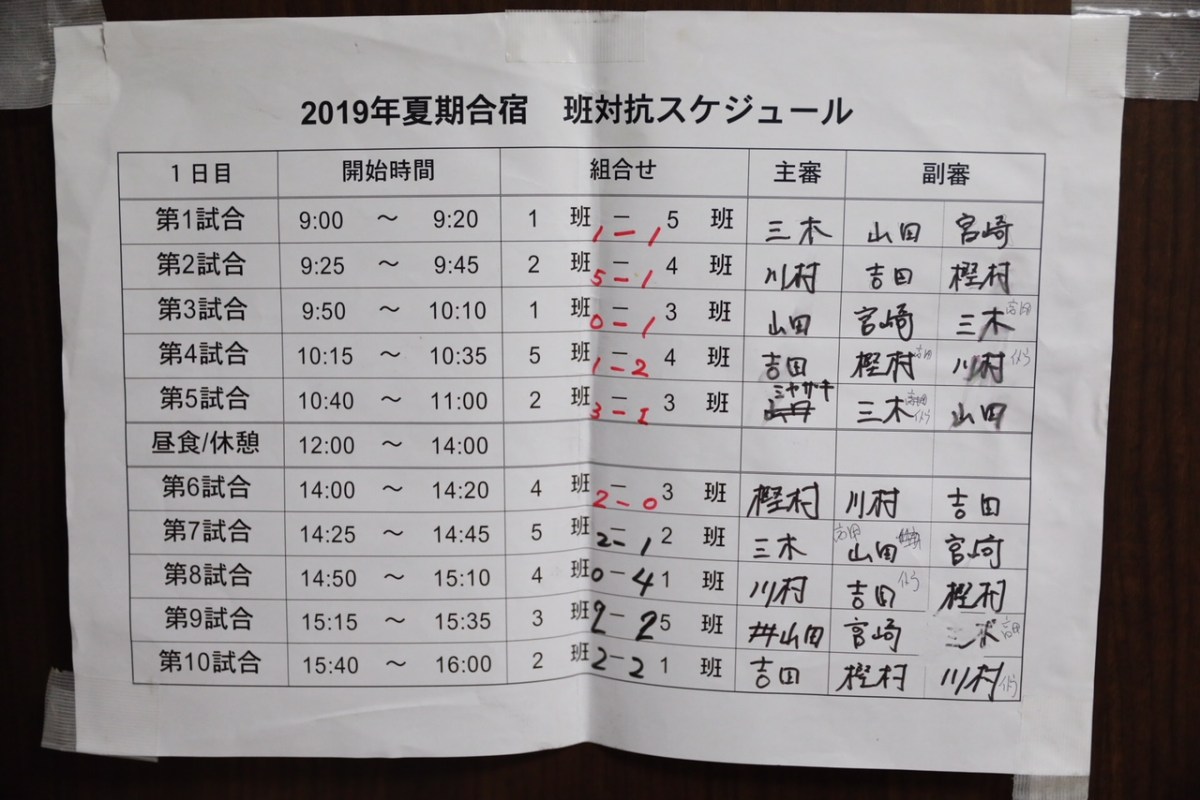 2019年夏期合宿 班対抗スケジュール
1日目 開始時間 組合せ 主審 副審
第1試合 9:00 ～ 9:20 1 班 － 5 班 1－1 三木 山田 宮崎
第2試合 9:25 ～ 9:45 2 班 － 4 班 5－1 川村 吉田 樫村
第3試合 9:50 ～ 10:10 1 班 － 3 班 0－1 山田 宮崎 三木
第4試合 10:15 ～ 10:35 5 班 － 4 班 1－2 吉田 樫村 川村
第5試合 10:40 ～ 11:00 2 班 － 3 班 3－1 ミヤサキ 三木 山田
昼食/休憩 12:00 ～ 14:00
第6試合 14:00 ～ 14:20 4 班 － 3 班 2－0 樫村 川村 吉田
第7試合 14:25 ～ 14:45 5 班 － 2 班 2－1 三木 山田 宮崎
第8試合 14:50 ～ 15:10 4 班 － 1 班 0－4 川村 吉田 樫村
第9試合 15:15 ～ 15:35 3 班 － 5 班 2－2 山田 宮崎 三木
第10試合 15:40 ～ 16:00 2 班 － 1 班 2－2 吉田 樫村 川村